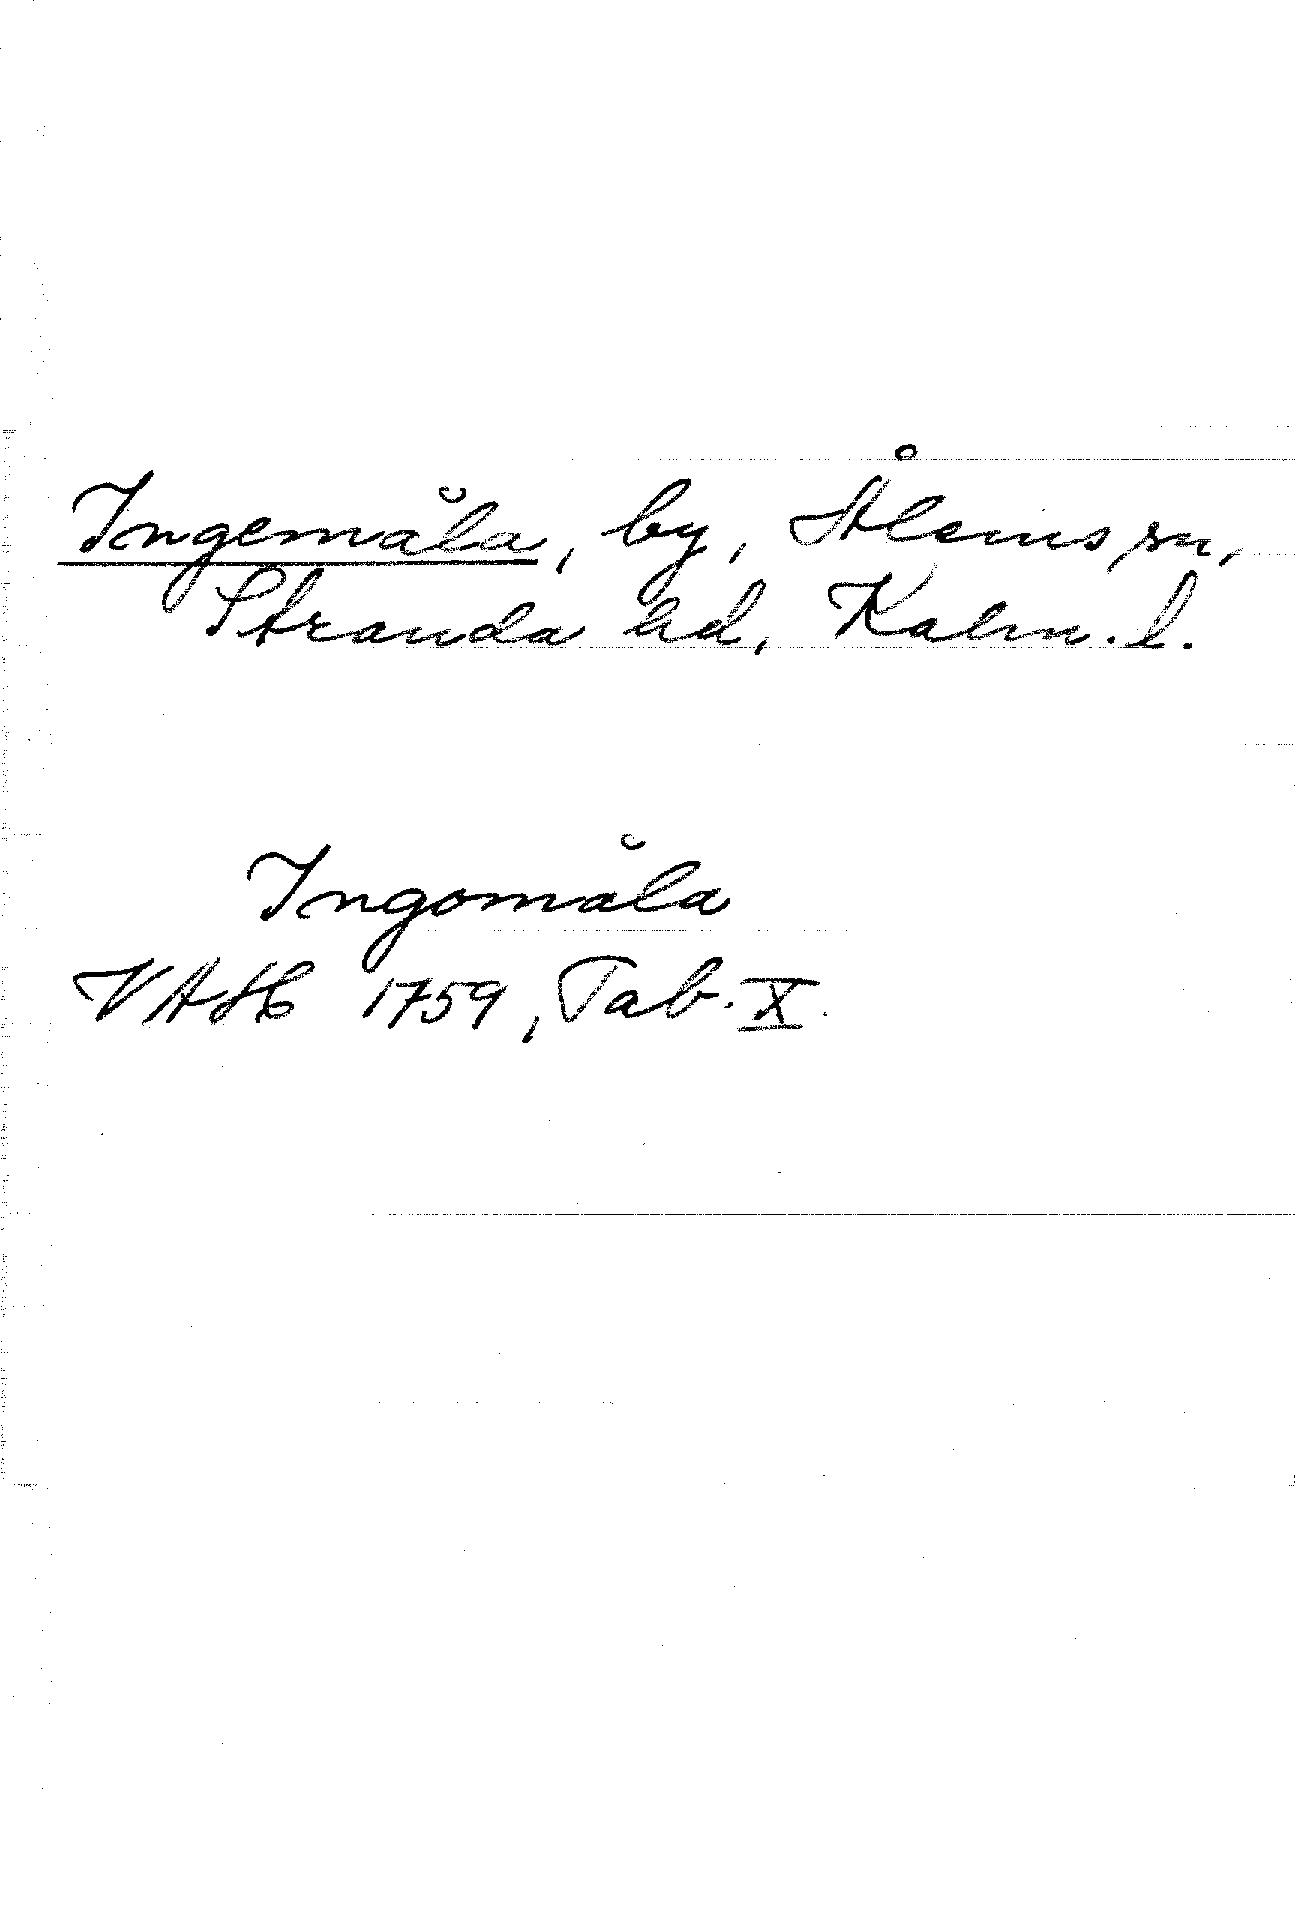 Ingemåla, by, Ålems sn,
Stranda hd, Kalm. l.
Ingomåla
VAH 1759, Tab. X.